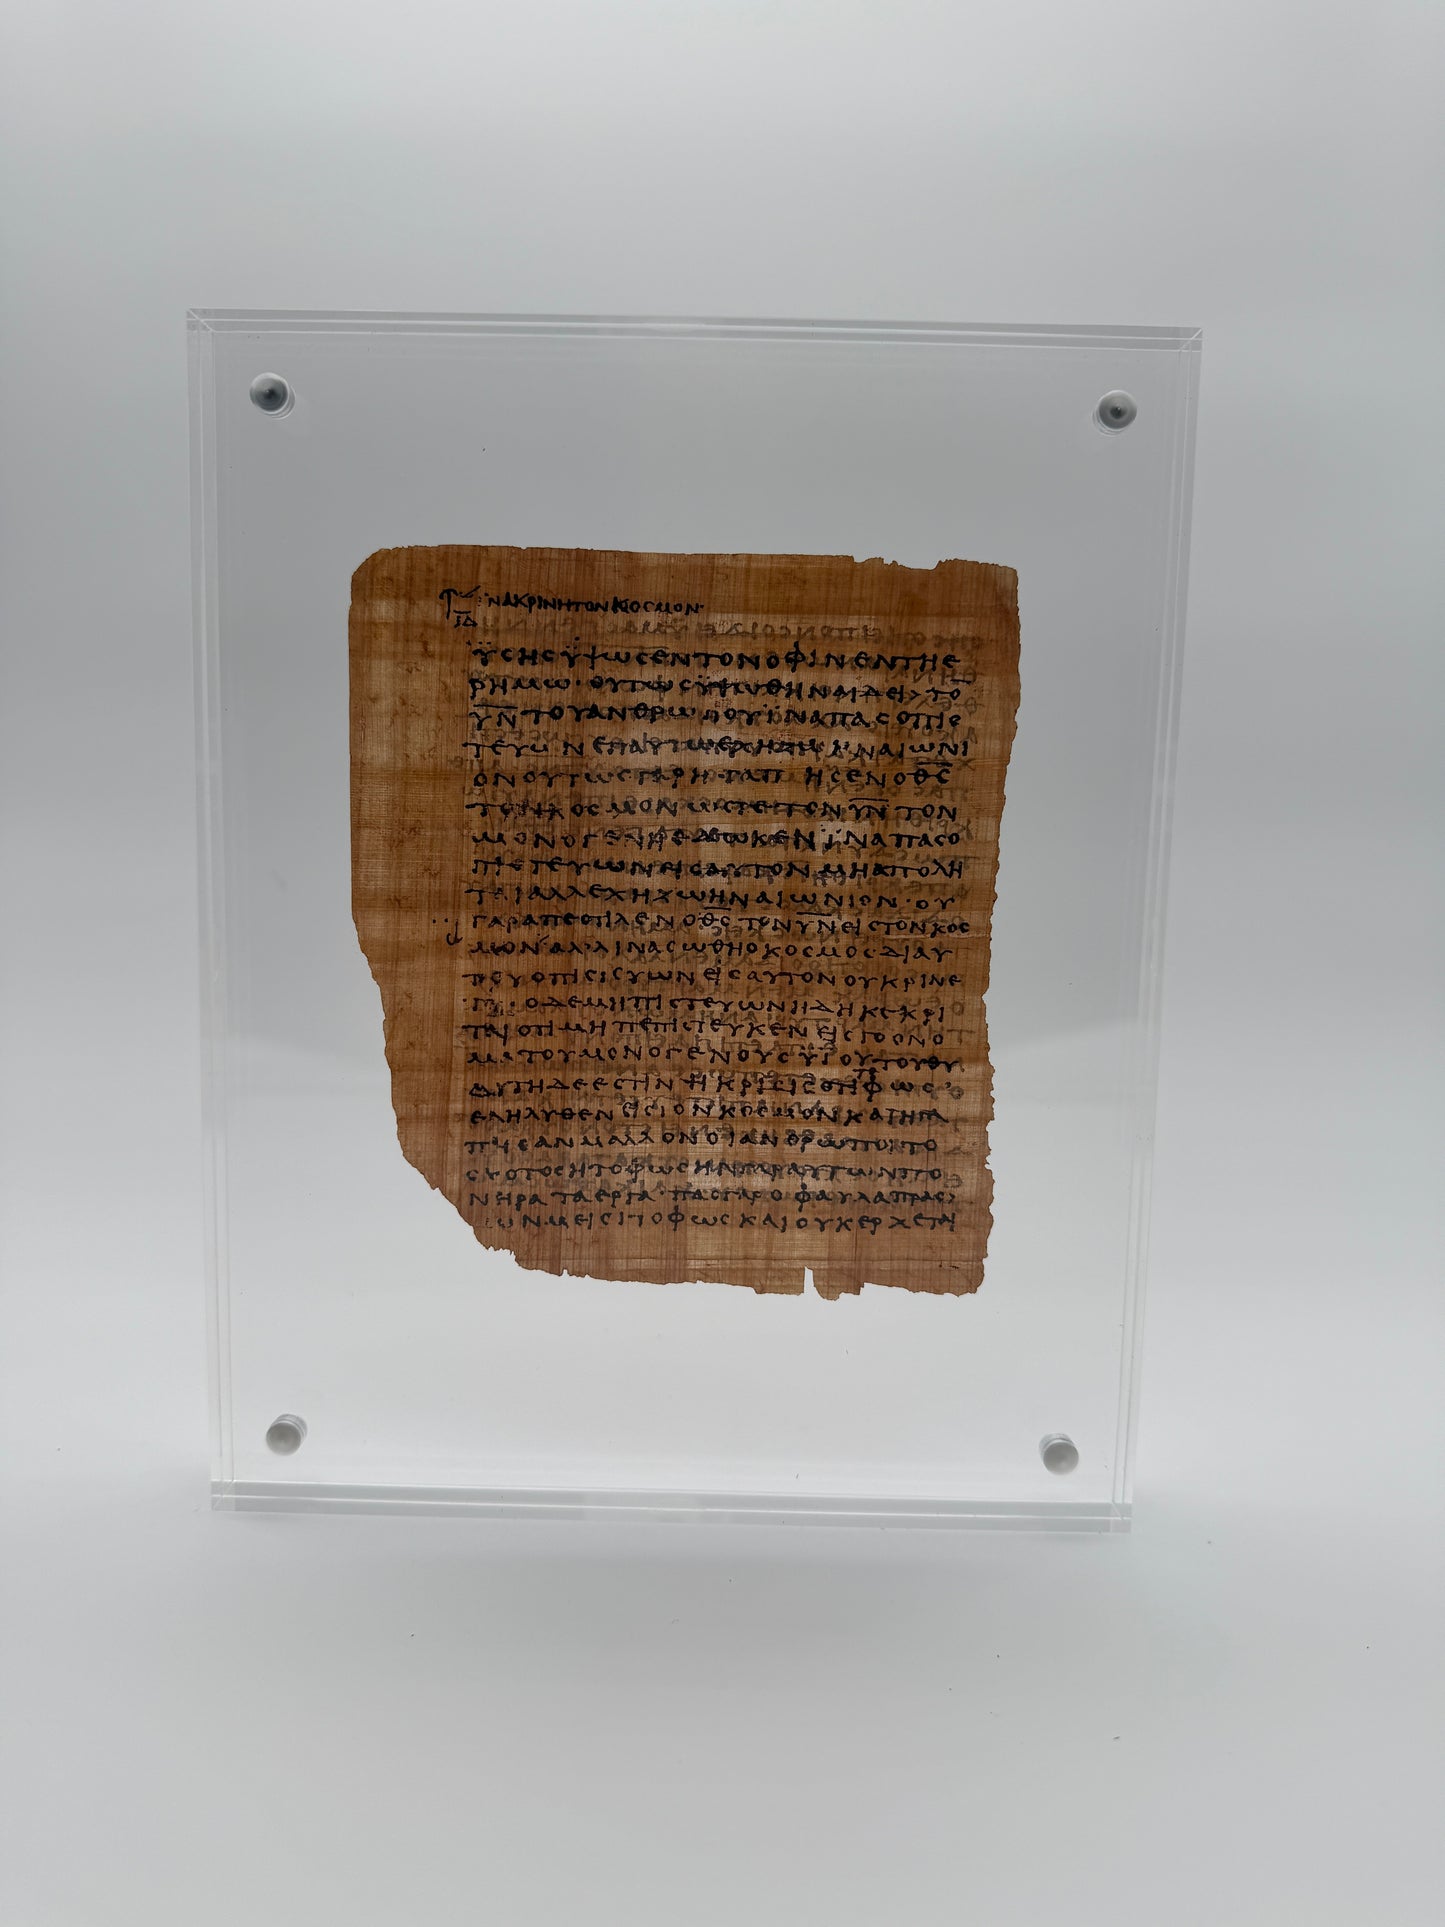 ΝΑΚΡΙΝΗΤΟΝΚΟϹΜΟΝ·
ΙΔ
ΫϹΗϹΫΨΩϹΕΝΤΟΝΟΦΙΝΕΝΤΗΕ
ΡΗΜΩ·ΟΥΤΩϹΫΨΩΘΗΝΑΙΔΕΙ>ΤΟ̅
Υ̅Ν̅ΤΟΥΑΝΘΡΩΠΟΥΪΝΑΠΑϹΟΠΙϹ
ΤΕΥΩΝΕΠΑΥΤΩΕΧΗΖΩΗΝΑΙΩΝΙ
ΟΝΟΥΤΩϹΓΑΡΗΓΑΠΗϹΕΝΟΘ̅Ϲ̅
ΤΟΝΚΟϹΜΟΝΩϹΤΕΤΟΝΥ̅Ν̅ΤΟΝ
ΜΟΝΟΓΕΝΗΕΔΩΚΕΝΪΝΑΠΑϹΟ
ΠΙϹΤΕΥΩΝΕΙϹΑΥΤΟΝΜΗΑΠΟΛΗ
ΤΑΙΑΛΛΕΧΗΖΩΗΝΑΙΩΝΙΟΝ·ΟΥ
ΓΑΡΑΠΕϹΤΙΛΕΝΟΘ̅Ϲ̅ΤΟΝΥ̅Ν̅ΕΙϹΤΟΝΚΟϹ
ΜΟΝ
ΑΛΛΙΝΑϹΩΘΗΟΚΟϹΜΟϹΔΙΑΥ
ΟΠΙϹΤΕΥΩΝΕΙϹΑΥΤΟΝΟΥΚΡΙΝΕ
ΟΔΕΜΗΠΙϹΤΕΥΩΝΗΔΗΚΕΚΡΙ
ΤΑΙΟΤΙΜΗΠΕΠΙϹΤΕΥΚΕΝΕΙϹΤΟΟΝΟ
ΜΑΤΟΥΜΟΝΟΓΕΝΟΥϹΫΙΟΥΤΟΥΘΥ
ΑΥΤΗΔΕΕϹΤΙΝΗΚΡΙϹΙϹΟΤΙΤΟΦΩϹ
ΕΛΗΛΥΘΕΝΕΙϹΤΟΝΚΟϹΜΟΝΚΑΙΗΓΑ
ΠΗϹΑΝΜΑΛΛΟΝΟΙΑΝΘΡΩΠΟΙΤΟ
ϹΚΟΤΟϹΗΤΟΦΩϹΗΝΓΑΡΑΥΤΩΝΠΟ
ΝΗΡΑΤΑΕΡΓΑ·ΠΑϹΓΑΡΟΦΑΥΛΑΠΡΑϹ>
ϹΩΝΜΕΙϹΙΤΟΦΩϹΚΑΙΟΥΚΕΡΧΕΤΑΙ